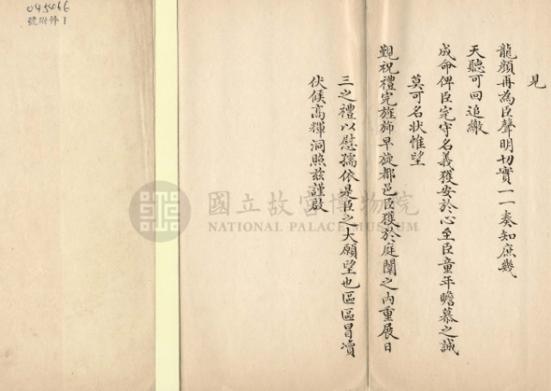 見
龍顏再為臣聲明切實一一奏知庶幾
天聽可回追繳
成命俾臣完守名義獲安於心至臣童年瞻慕之誠
莫可名狀惟望
覲祝禮完旌斾早旋都邑臣獲於庭闈之內重展日
三之禮以慰孺依是臣之大願望也區區冒瀆
伏候高輝洞照茲謹啟
045066
號附件1
國立故宮博物院
NATIONAL PALACE MUSEUM